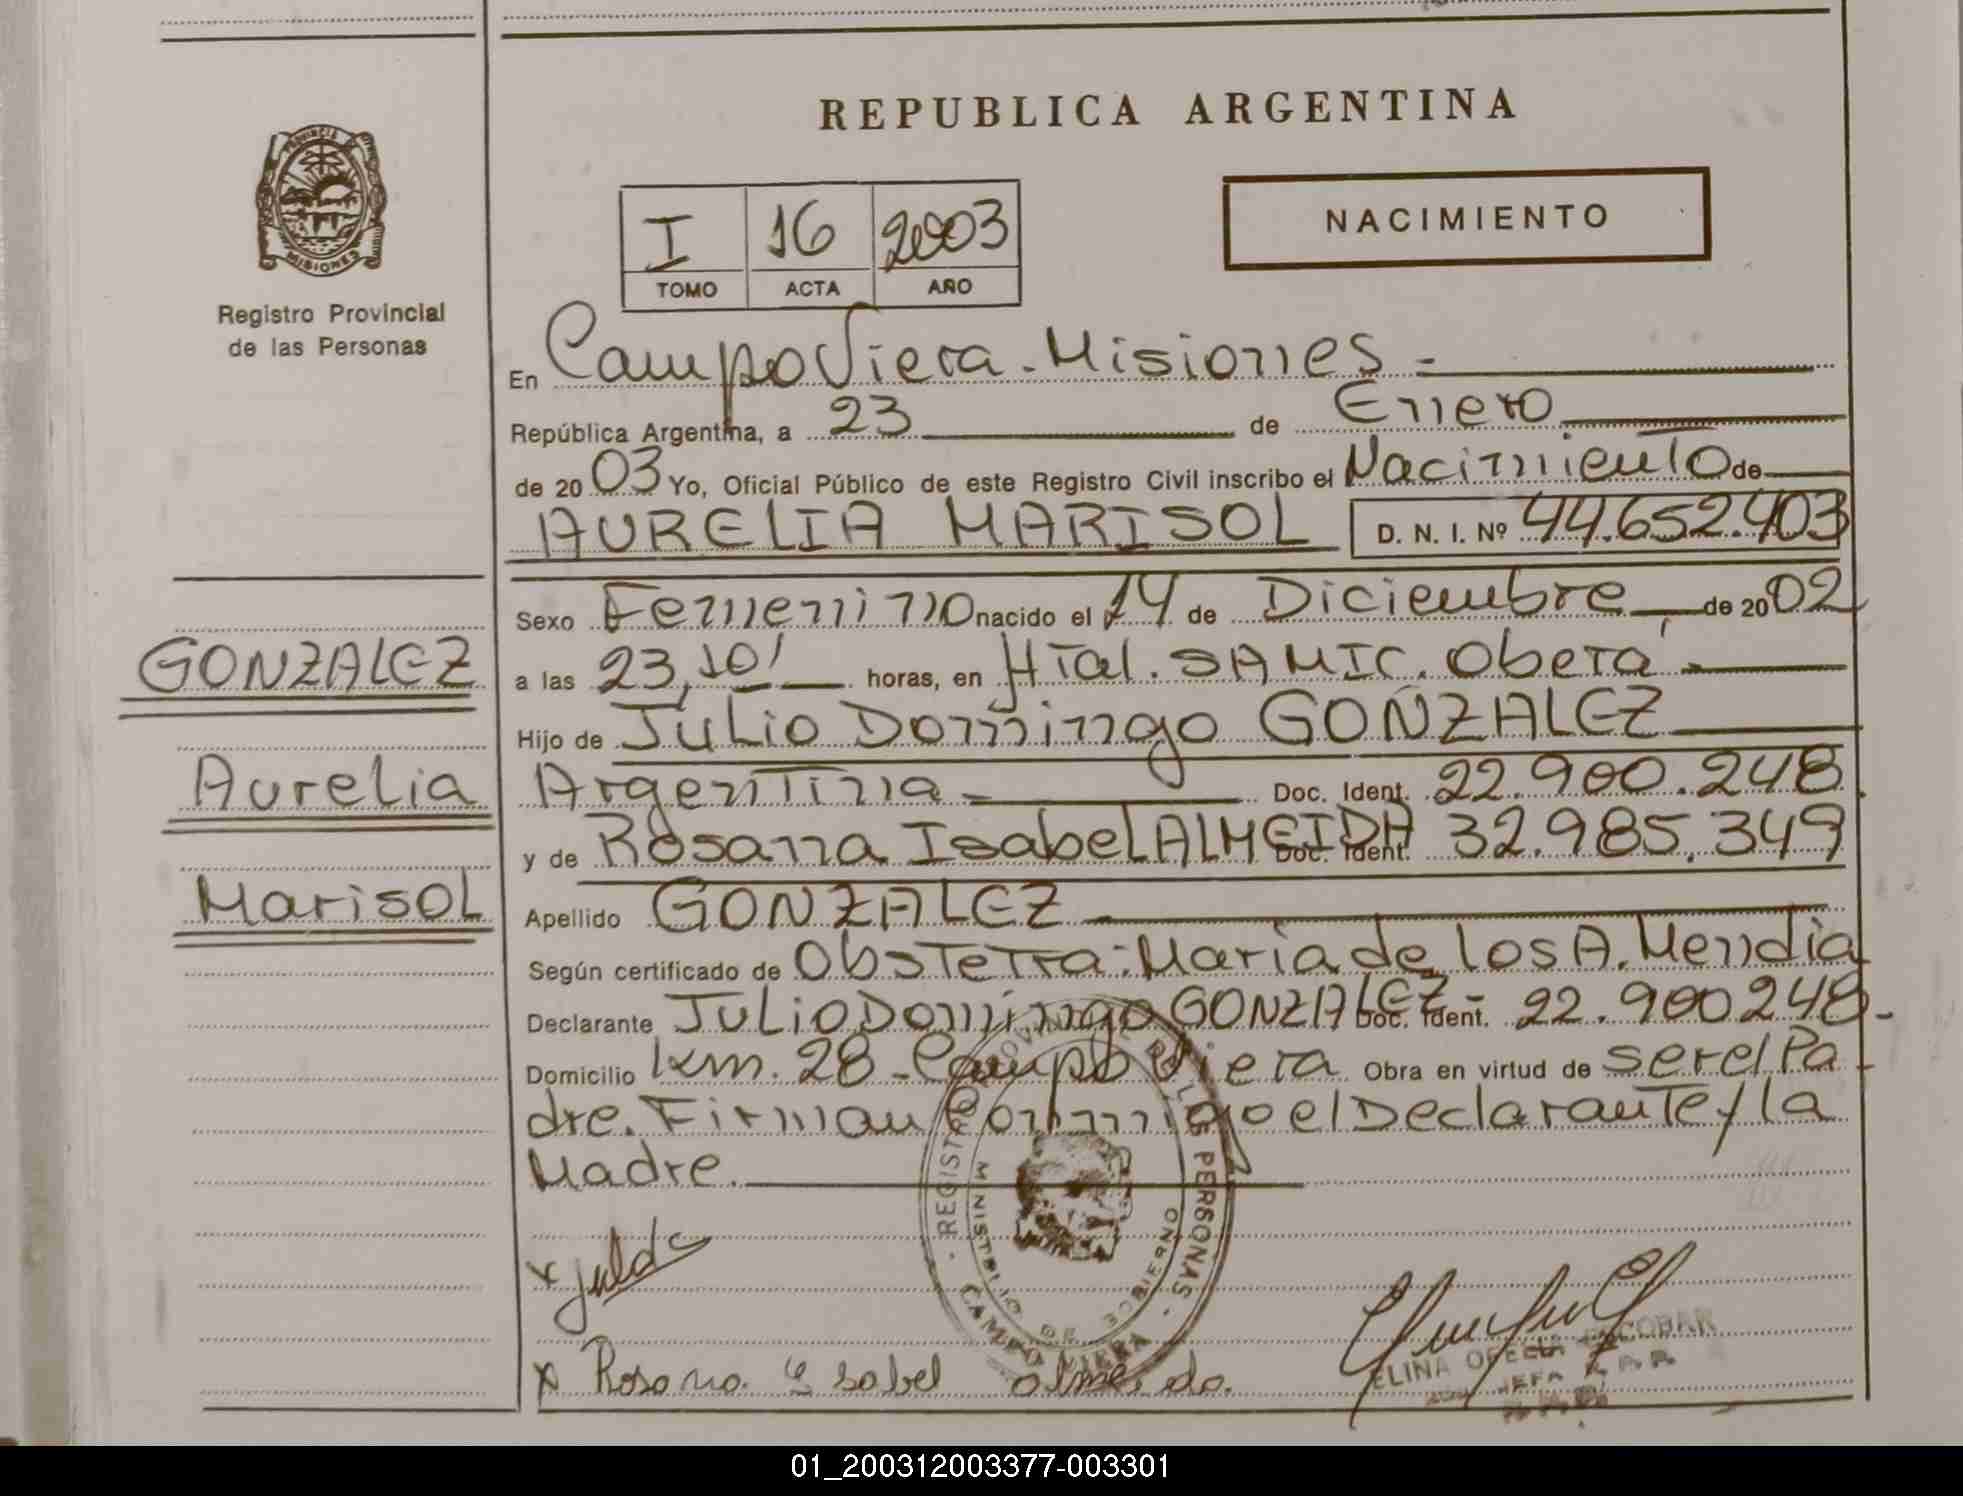 REPUBLICA ARGENTINA
PROVINCIA
MISIONES
Registro Provincial
de las Personas
I 16 2003
TOMO ACTA AÑO
NACIMIENTO
En Campo Viera - Misiones -
República Argentina, a 23 de Enero
de 20 03 Yo, Oficial Público de este Registro Civil inscribo el Nacimiento de
AURELIA MARISOL D. N. I. Nº 44.652.403
Sexo Femenino nacido el 14 de Diciembre de 20 02
GONZALEZ
a las 23,10' horas, en Htal. SAMIC. Oberá -
Hijo de Julio Domingo GONZALEZ
Aurelia
Argentina - Doc. Ident. 22.900.248
y de Rosana Isabel ALMEIDA Doc. Ident. 32.985.349
Marisol
Apellido GONZALEZ -
Según certificado de Obstetra: Maria de los A. Mendia
Declarante Julio Domingo GONZALEZ - Doc. Ident. 22.900248-
Domicilio km. 28 - Campo Viera Obra en virtud de ser el Pa
dre. Firman Conmigo el Declarante y la
Madre.
REGISTRO PROVINCIAL DE LAS PERSONAS
MINISTERIO DE GOBIERNO
CAMPO VIERA
x
x Rosana Isabel Almeida
ELINA OFELIA ESCOBAR
JEFA
01_200312003377-003301